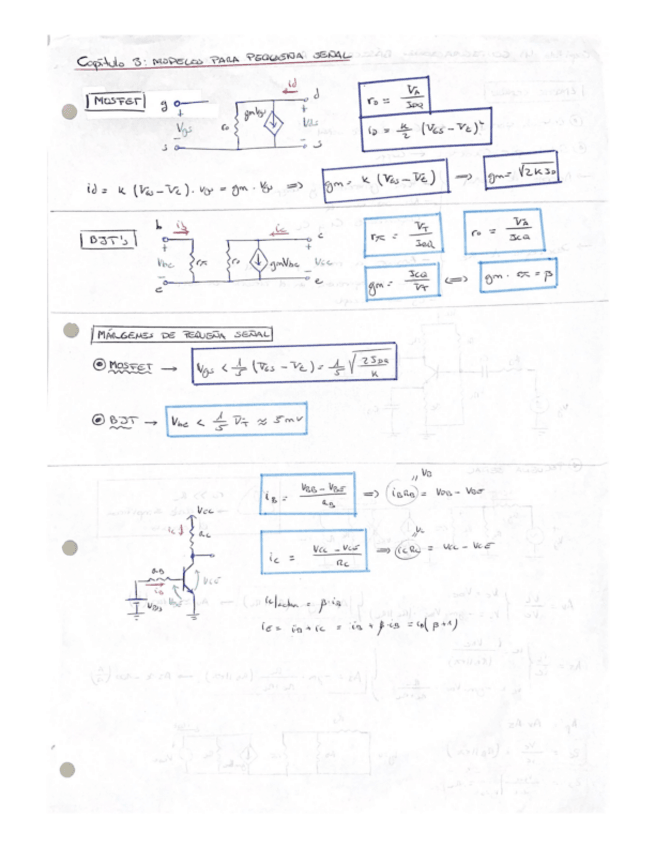 Capítulo 3: MODELOS PARA PEQUEÑA SEÑAL
MOSFET
g
+
Vgs
-
s
ro
gmVgs
id
d
+
Vds
-
s
ro = VA / IDQ
iD = K/2 (VGS - Vt)²
id = K (VGS - Vt) · vgs = gm · Vgs => gm = K (VGS - Vt) => gm = √2KID
BJT's
b
ib
+
Vbe
-
e
rπ
ro
gmVbe
ic
c
+
Vce
-
e
rπ = VT / IBQ
ro = VA / ICQ
gm = ICQ / VT <=> gm · rπ = β
MÁRGENES DE PEQUEÑA SEÑAL
MOSFET → Vgs < 1/5 (VGS - Vt) = 1/5 √ 2IDQ / K
BJT → Vbe < 1/5 VT ≈ 5mV
iB = VBB - VBE / RB => iBRB = VBB - VBE
iC = VCC - VCE / RC => iCRC = VCC - VCE
VCC
iC
RC
RB
iB
VBB
VBE
VCE
= β·iB
iE = iB + iC = iB + β·iB = iB(β+1)